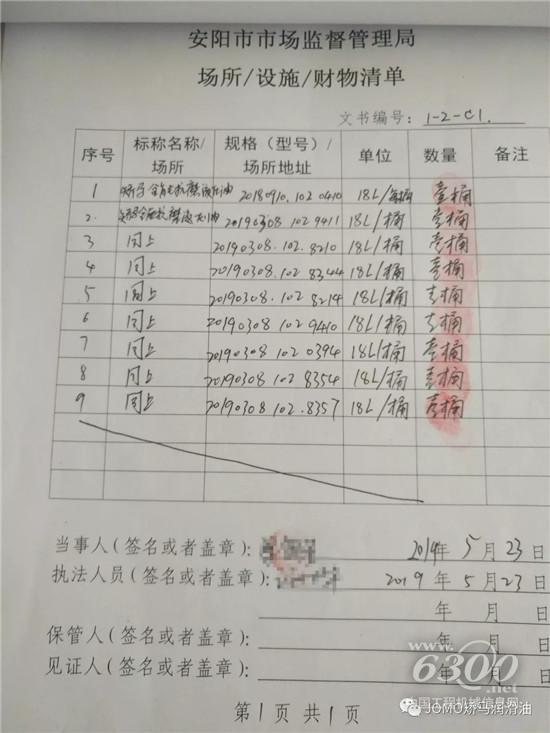 安阳市市场监督管理局
场所/设施/财物清单
文书编号: 1-2-C1.
序号 标称名称/场所 规格（型号）/场所地址 单位 数量 备注
1 抗磨液压油 20180910.102 0410 18L/桶 壹桶
2. 抗磨液压油 20190308 102 9411 18L/桶 壹桶
3 同上 20190308.102.8210 18L/桶 壹桶
4 同上 20190308.102 8344 18L/桶 壹桶
5 同上 20190308.102 8214 18L/桶 壹桶
6 同上 20190308 102 9410 18L/桶 壹桶
7 同上 20190308 102 0394 18L/桶 壹桶
8 同上 20190308 102 8354 18L/桶 壹桶
9 同上 20190308 102.8357 18L/桶 壹桶
当事人(签名或者盖章): 2019年 5 月 23日
执法人员(签名或者盖章): 2019 年 5 月 23日
年 月 日
保管人(签名或者盖章): 年 月 日
见证人(签名或者盖章): 年 月 日
第1页 共1页
6300.net
中国工程机械信息网
JOMO矫马润滑油